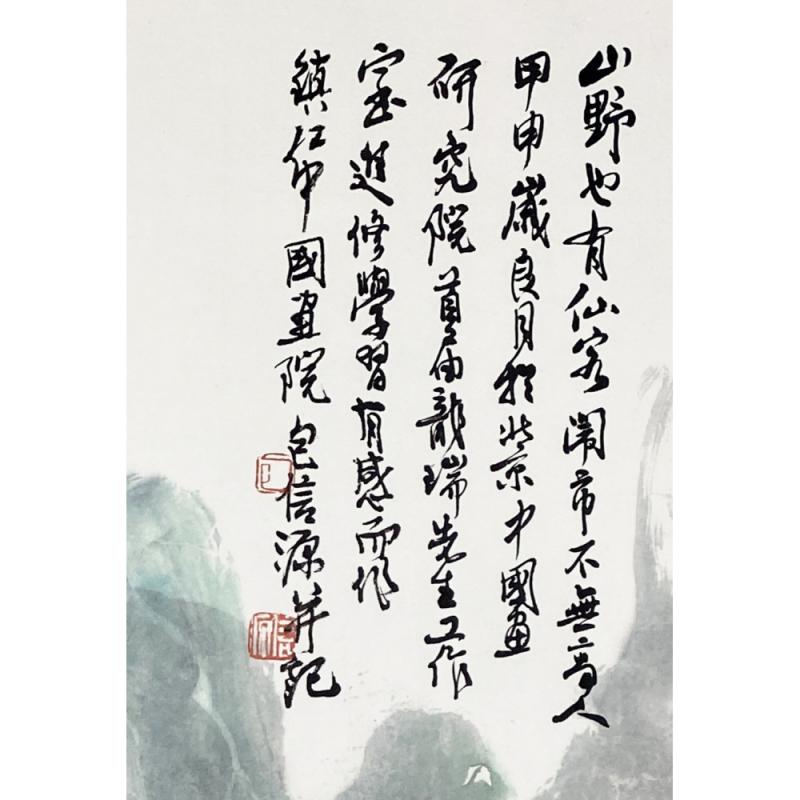 山野也有仙客鬧市不無高人
甲申歲良月於北京中國畫
研究院首届龍瑞先生工作
室進修學習有感而作
鎮江中國畫院包信源并記